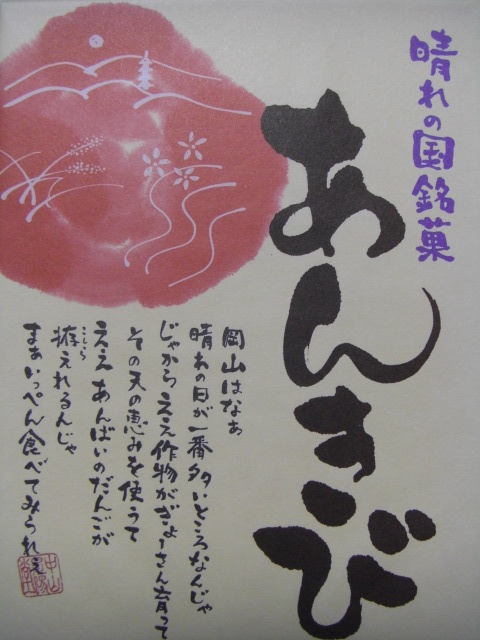 晴れの国銘菓
あんきび
岡山はなぁ
晴れの日が一番多いところなんじゃ
じゃからええ作物がぎょーさん育って
その天の恵みを使うて
ええあんばいのだんごが
拵えれるんじゃ
こしら
まぁいっぺん食べてみられぇ